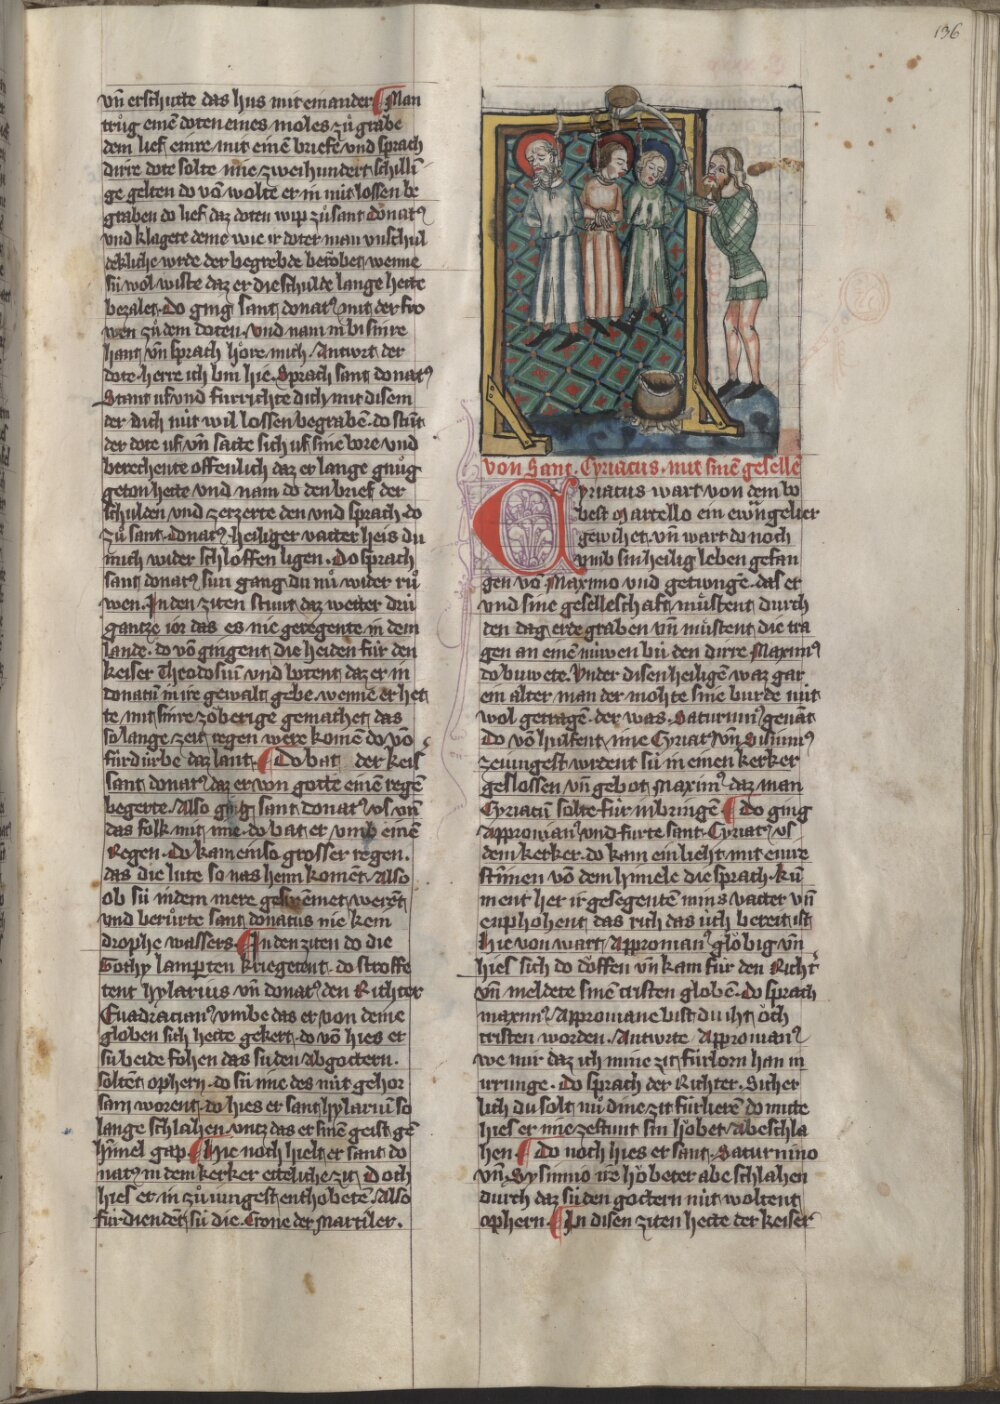 136
vn̄ erschutte das hus mit einander Man
trůg einē doten eines moles zů grabe
dem lief einre mit einē briefe vnd sprach
dirre dote solte mir zweihundert schilli̅
ge gelten do vō wolte er in nit lossen be
graben do lief daz doten wip zů sant donatꝰ
vnd klagete deme wie ir doter man vnschul
dekliche wrde der begrebde beröbet wenne
sü wol wiste daz er die schulde lange hette
bezalet. Do ging sant donatꝰ mit der fro
wen zů dem doten. vnd nam in bi sinre
hant vn̄ sprach höre mich. Antwrt der
dote. herre ich bin hie. Sprach sant donatꝰ
Stant uf vnd fürrichte dich mit disem
der dich nüt wil lossen begrabē. do stůt
der dote uf vn̄ satte sich uf sine bore vnd
berechente offenlich daz er lange gnůg
geton hette vnd nam do den brief der
schulden vnd zerzerte den vnd sprach. do
zů sant. donatꝰ. heiliger vatter heis du
mich wider schloffen ligen. Do sprach
sant donatꝰ sun gang du nů wider rů
wen. In den ziten stunt daz wetter drü
gantze ior das es nie geregente in dem
lande. do vō gingent die heiden für den
keiser Theodosiū vnd botent daz er in
donatū in ire gewalt gebe. wenne er het
te mit sinre zöberige gemachet das
so lange zeit regen were komē do vō
fürdürbe daz lant. Do bat der keis
sant donatꝰ daz er von gotte einē regē
begerte. Also ging sant donatꝰ vs vn̄
das folk mit ime. do bat er vmb einē
Regen. do kam ein so grosser regen.
das die lute so nas heim komēt. Also
ob sü in dem mere geswemet werēt
vnd berůrte sant donatus nie kein
drophe wassers. In den ziten do die
Gothy lamparten kriegetent. do stroffe
tent hylarius vn̄ donatꝰ den Richter
Euadracianꝰ vmbe das er von deme
globen sich hette gekert. do vō hies er
sü beide fohen das sü den abgöttern.
soltēt ophern. do sü ime des nüt gehor
sam worent. do hies er sant hylariū so
lange schlahen vntz das er sinē geist gē
himel gap. Hie noch hielt er sant do
natꝰ in dem kerker etteliche zit. Doch
hies er in zů iungest enthobete. Also
fürdiendēt sü die. Crone der Martiler.
von Sant. Cyriacus. mit sinē gesellē
Cyriacus wart von dem bo
best Marcello ein ewāgelier
gewihet. vn̄ wart do noch
vmb sin heilig leben gefan
gen vō Maximo vnd getwngē. das er
vnd sine geselleschaft můstent durch
den dag erde graben vn̄ můstent die tra
gen an einē nuwen bū den dirre Maximꝰ
do buwete. Vnder disen heiligē waz gar
ein alter man der mohte sine burde nüt
wol getragē. der was. Saturninꝰ genāt
Do vō hulfent ime Cyriatꝰ vn̄ Sisiniꝰ
zeiungest wrdent sü in einen kerker
geslossen vn̄ gebot Maximꝰ daz man
Cyriatū solte für in bringē Do ging
Appronianꝰ vnd fůrte sant. Cyriatꝰ vs
dem kerker. do kam ein lieht mit einre
stimen vō dem himele die sprach. kū
ment her ir gesegentē mins vatter vn̄
enphohent das rich das üch bereit ist
Hie von wart Appronianꝰ glöbig vn̄
hies sich do döffen vn̄ kam für den Richt̄
vn̄ meldete sinē cristen globē. do sprach
maximꝰ Approniane bist du iht öch
cristen worden. Antwrte Appronianꝰ
we mir daz ich mine zit fürlorn han in
irrunge. Do sprach der Richter. Sicher
lich du solt nů dine zit fürlierē do mitte
hies er ime zestunt sin höbet abeschla
hen. Do noch hies er sant. Saturnino
vn̄. Sysinnio ire höbeter abe schlahen
durch daz sü den göttern nüt woltent
ophern. In disen ziten hette der keiser